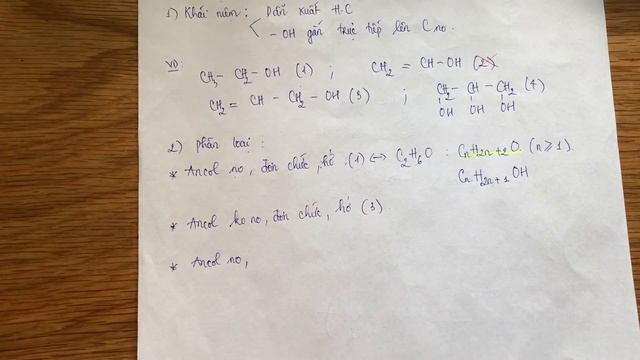 1) Khái niệm : Dẫn xuất H.C
- OH gắn trực tiếp lên C no.
VD: CH3 - CH2 - OH (1) ; CH2 = CH - OH (2)
CH2 = CH - CH2 - OH (3) ; CH2 - CH - CH2 (4)
OH OH OH
2) Phân loại :
* Ancol no, đơn chức, hở : (1) ↔ C2H6O : CnH2n+2O. (n ≥ 1).
CnH2n+1OH
* Ancol ko no, đơn chức, hở (3)
* Ancol no,